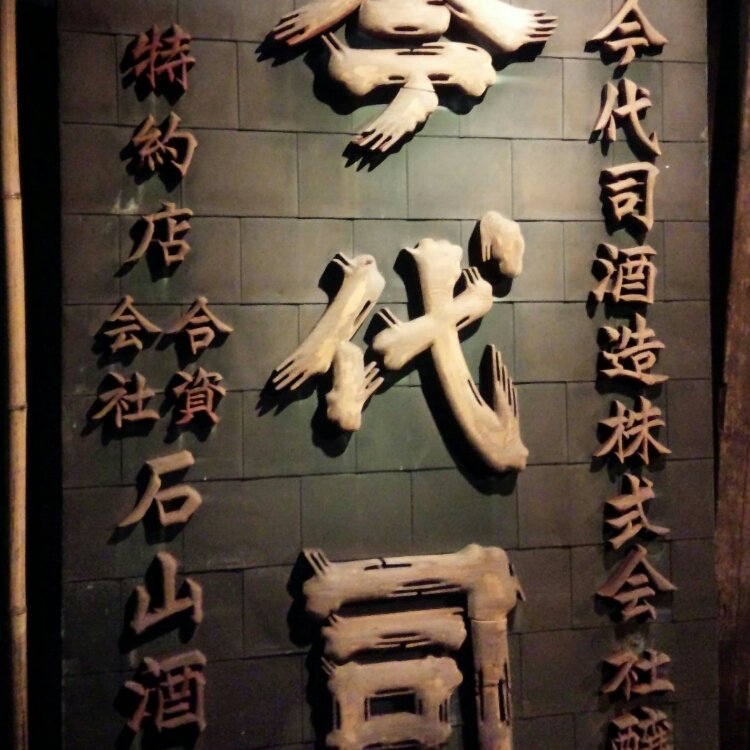 今代司酒造株式会社醸
今代司
特約店合資会社石山酒